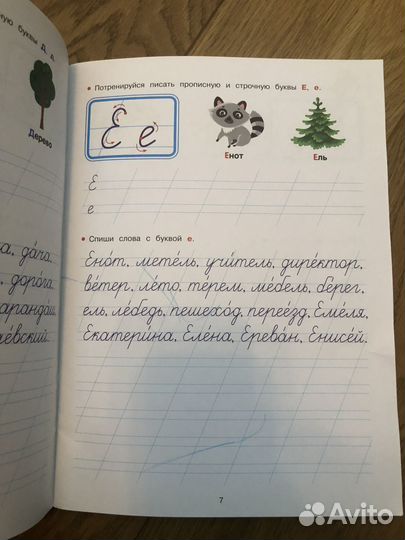 ную буквы Д, д.
Дерево
дача.
дорога.
• Потренируйся писать прописную и строчную буквы Е, е.
Е е
Енот
Ель
Е
е
• Спиши слова с буквой е.
Ено́т, мете́ль, учи́тель, дире́ктор,
ве́тер, ле́то, те́рем, ме́бель, бе́рег,
ель, ле́бедь, пешехо́д, перее́зд, Еме́ля,
Екатери́на, Еле́на, Ерева́н, Енисе́й.
7
Avito